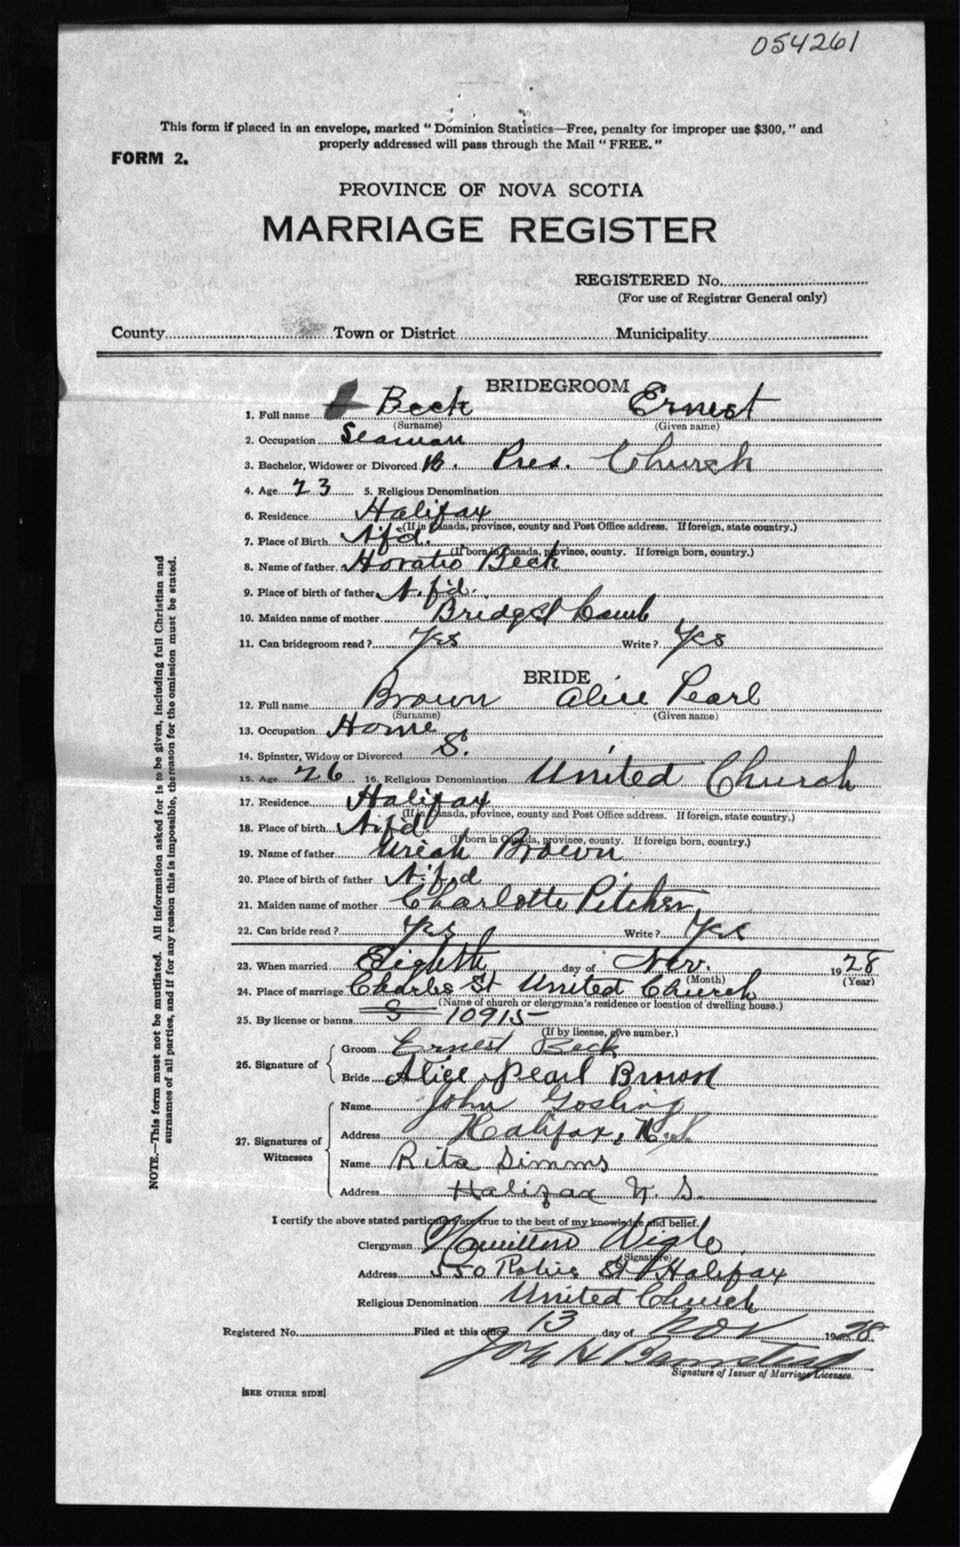 054261
This form if placed in an envelope, marked "Dominion Statistics—Free, penalty for improper use $300," and
properly addressed will pass through the Mail "FREE."
FORM 2.
PROVINCE OF NOVA SCOTIA
MARRIAGE REGISTER
REGISTERED No.
(For use of Registrar General only)
County Town or District Municipality
BRIDEGROOM
1. Full name Beck Ernest
(Surname) (Given name)
2. Occupation Seaman
3. Bachelor, Widower or Divorced B. Pres. Church
4. Age 23 5. Religious Denomination
6. Residence Halifax
(If in Canada, province, county and Post Office address. If foreign, state country.)
7. Place of Birth Nfd.
(If born in Canada, province, county. If foreign born, country.)
8. Name of father Horatio Beck
9. Place of birth of father N.f'd.
10. Maiden name of mother Bridget
11. Can bridegroom read? Yes Write? Yes
BRIDE
12. Full name Brown Alice Pearl
(Surname) (Given name)
13. Occupation Home
14. Spinster, Widow or Divorced S.
15. Age 26 16. Religious Denomination United Church
17. Residence Halifax
(If in Canada, province, county and Post Office address. If foreign, state country.)
18. Place of birth N.f'd
(If born in Canada, province, county. If foreign born, country.)
19. Name of father Uriah Brown
20. Place of birth of father N.f'd
21. Maiden name of mother Charlotte Pitcher
22. Can bride read? Yes Write? Yes
23. When married Eighth day of Nov. 1928
(Month) (Year)
24. Place of marriage Charles St United Church
(Name of church or clergyman's residence or location of dwelling house.)
25. By license or banns S 10915
(If by license, give number.)
26. Signature of
Groom Ernest Beck
Bride Alice Pearl Brown
27. Signatures of Witnesses
Name John Gosling
Address Halifax, N.S.
Name Rita Simms
Address Halifax N. S.
I certify the above stated particulars are true to the best of my knowledge and belief.
Clergyman Hamilton Wigle
(Signature)
Address 550 Robie St Halifax
Religious Denomination United Church
Registered No. Filed at this office 13 day of Nov 1928
Signature of Issuer of Marriage Licenses.
[SEE OTHER SIDE]
NOTE.—This form must not be mutilated. All information asked for is to be given, including full Christian and
surnames of all parties, and if for any reason this is impossible, the reason for the omission must be stated.